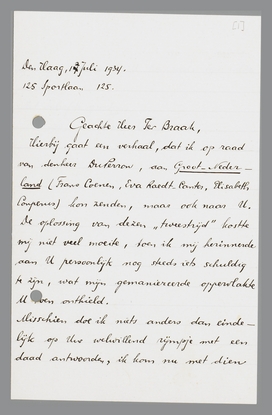 [1]
Den Haag, 12 Juli 1934.
125 Sportlaan 125.
Geachte Heer Ter Braak,
Hierbij gaat een verhaal, dat ik op raad
van den heer DuPerron, aan Groot-Neder-
land (Frans Coenen, Eva Raedt-Canter, Elisabeth
Couperus) kon zenden, maar ook naar U.
De oplossing van dezen „tweestrijd" kostte
mij niet veel moeite, toen ik mij herinnerde
aan U persoonlijk nog steeds iets schuldig
te zijn, wat mijn gemaniereerde oppervlakte
U even onthield.
Misschien doe ik niets anders dan einde-
lijk op Uw welwillend rijmpje met een
daad antwoorden, ik kom nu met dien